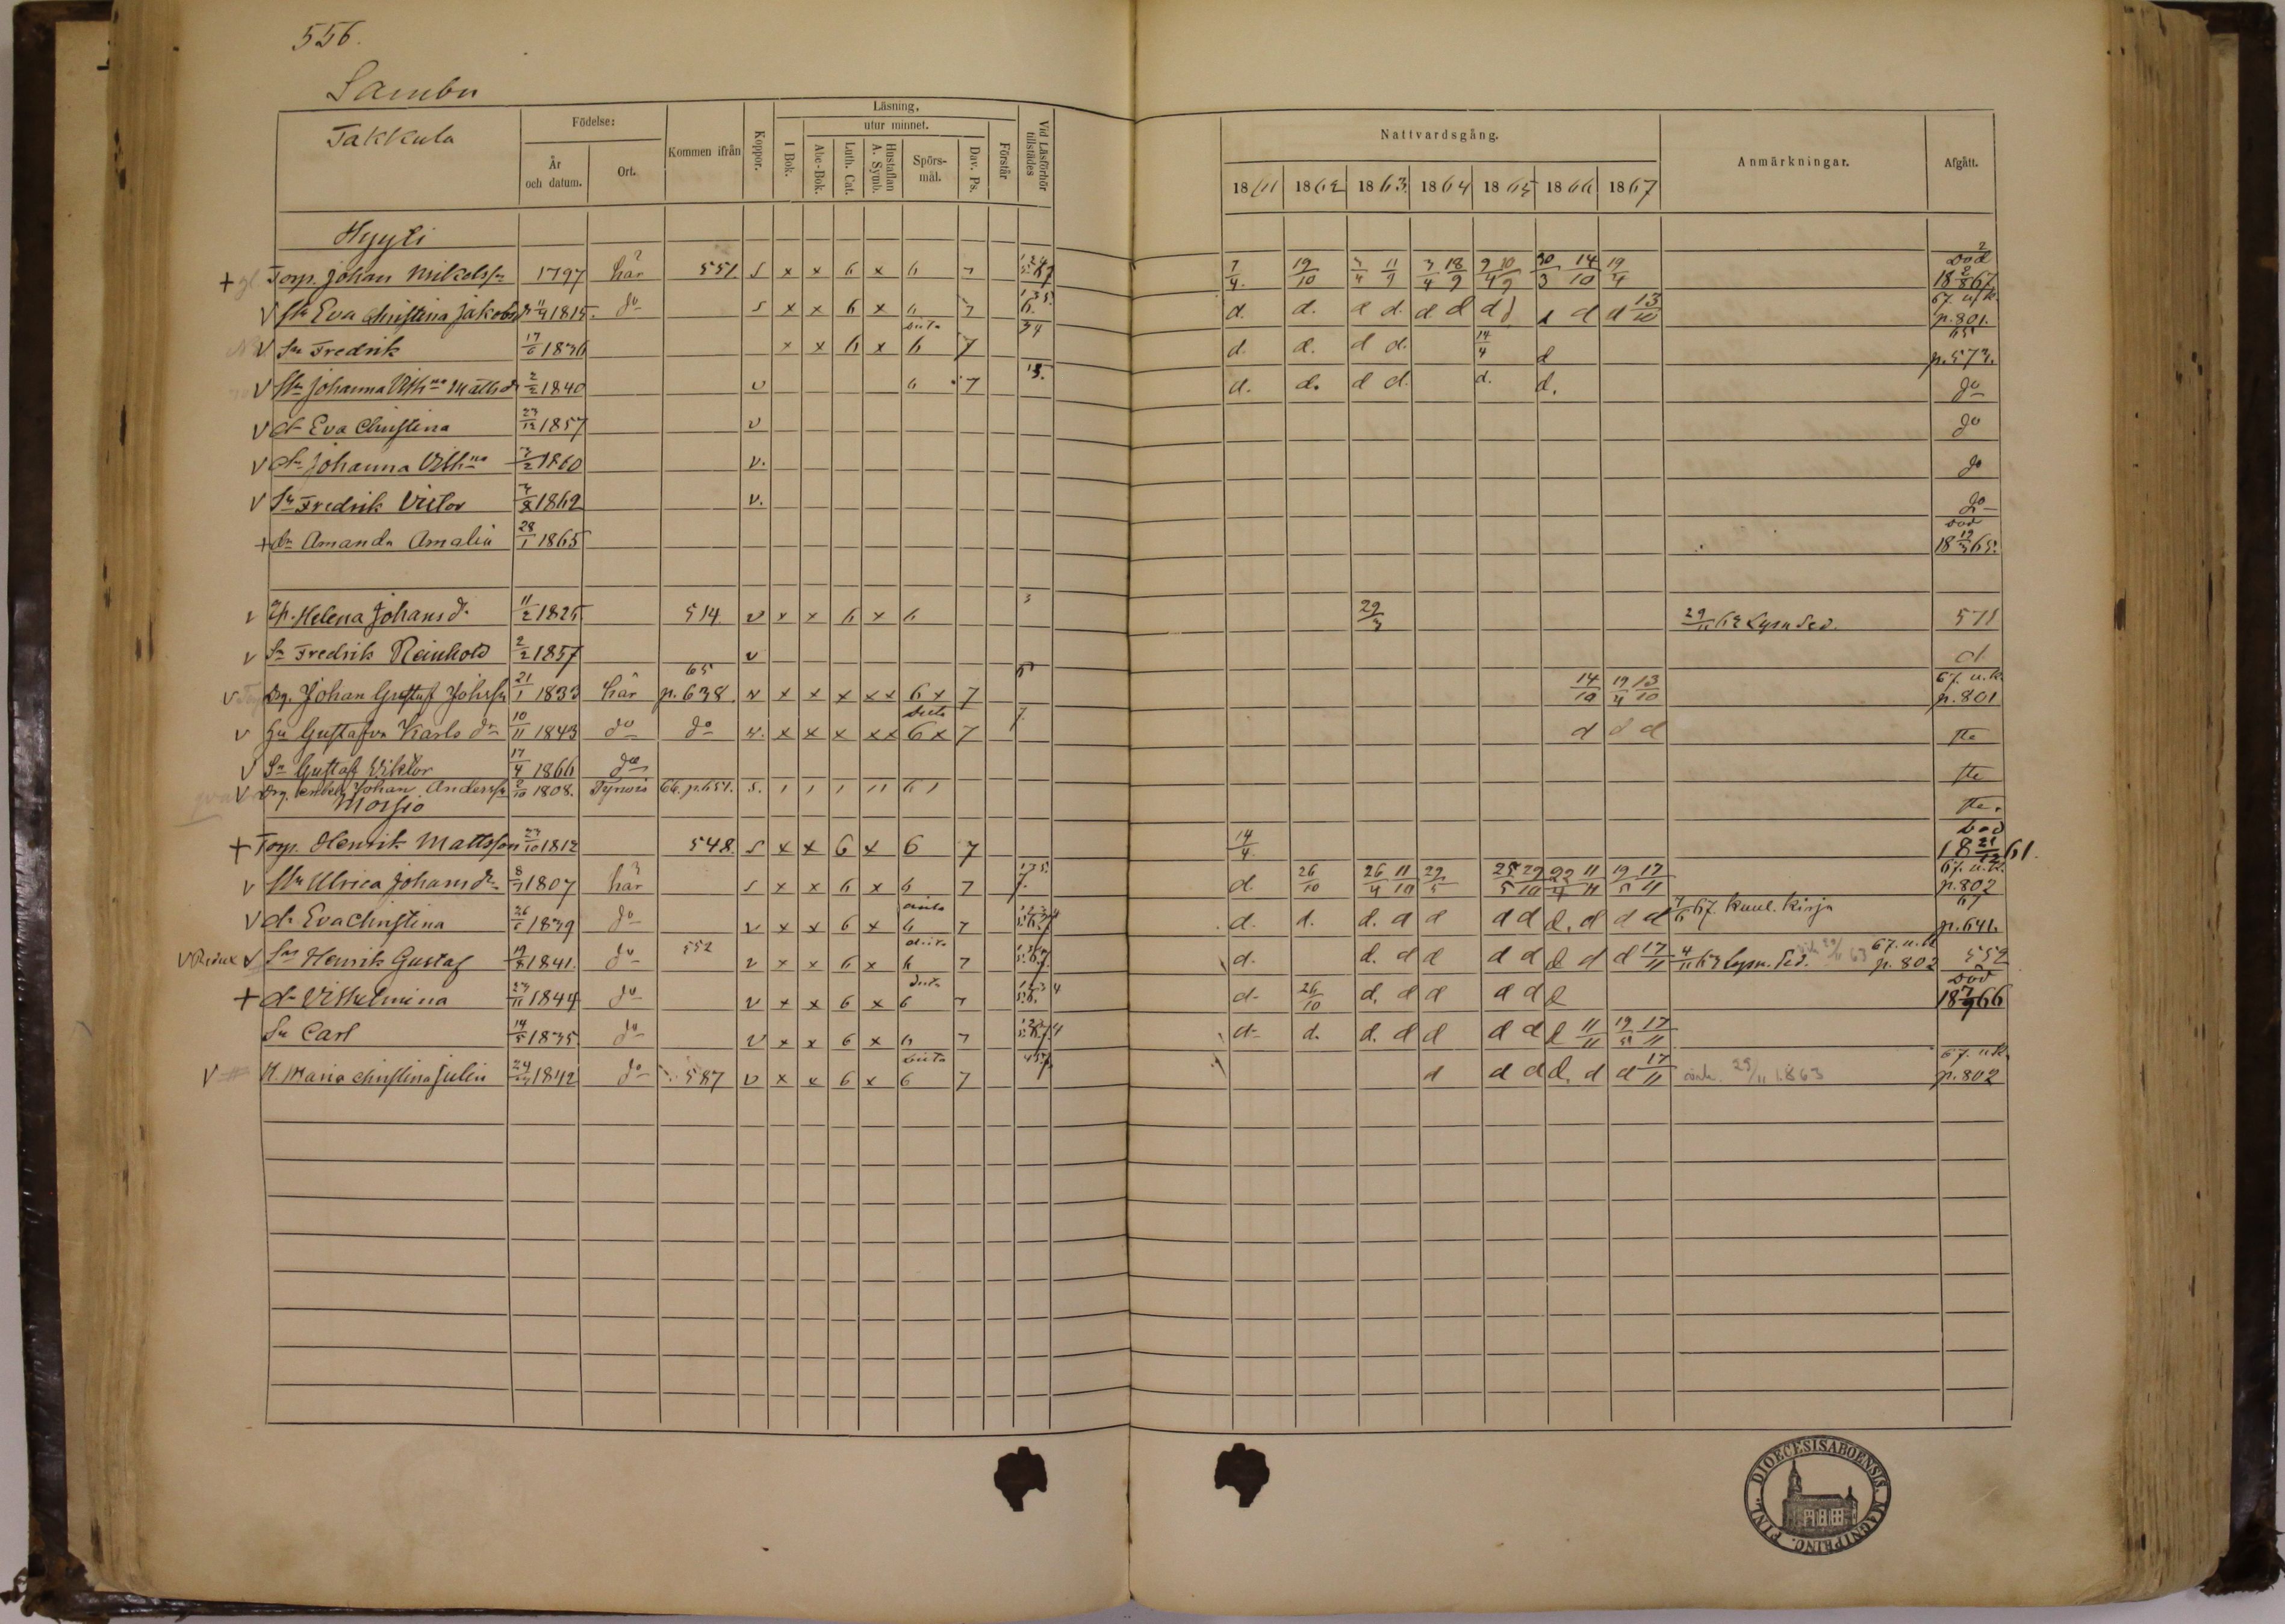 556.
Sambu
Takkula
Födelse:
År och datum.
Ort.
Kommen ifrån
Koppor.
Läsning,
utur minnet.
I Bok.
Abc-Bok.
Luth. Cat.
Hustaflan A. Symb.
Spörsmål.
Dav. Ps.
Förstår
Vid Läsförhör tillstädes
Nattvardsgång.
1861 1862 1863 1864 1865 1866 1867
Anmärkningar.
Afgått.
Hyyli
+ Torp. Johan Mikelsson 1797 här 551. s x x 6 x 6 7 7/4. 19/10 3/4 11/9 3/4 18/9 9/4 10/9 30/3 14/10 19/4 död 18 2/8 67
V Hu Eva Christina Jakobsdr 11/4 1815. do s x x 6 x 6 7 d. d. d d. d d d d d d d 13/10 67. u.k. p.801.
V Sn Fredrik 17/6 1836 x x 6 x 6 7 34 d. d. d d. 14/4 d 65 p.573.
V Hu Johanna Vilhna Mattsdr 2/2 1840 v 6 7 d. d. d d. d. d. do
V dr Eva Christina 23/12 1857 v do
V dr Johanna Vilhna 3/2 1860 v. do
V Sn Fredrik Victor 3/8 1862 v. do
+ dr Amanda Amalia 28/1 1865 död 18 12/3 65.
v Helena Johansd. 11/2 1825 514 v x x 6 x 6 3 29/3 29/11 63 Lysn Sed. 571
v Sn Fredrik Reinhold 2/2 1857 v d.
v Drg. Johan Gustaf Johsson 21/1 1833 här 65 p.638. v x x x xx 6 x 7 14/10 19/4 13/10 67. u.k. p.801
v Hu Gustafva Karlsdr 10/11 1843 do do v. x x x xx 6 x 7 7. d d d
V Sn Gustaf Viktor 17/4 1866 do
V Drg. Johan Andersson 2/10 1808. Tyrvis 66. p.651. s.
Moisio
+ Torp. Henrik Mattsson 23/10 1812 548. s x x 6 x 6 7 14/4. död 18 21/12 61.
v Hu Ulrica Johansdr 8/7 1807 här s x x 6 x 6 7 d. 26/10 26/4 11/10 29/5 25/5 29/10 22/4 11/11 19/5 17/11 67. u.k. p.802
V dr Eva Christina 26/6 1839 do v x x 6 x 6 7 d. d. d. d d d d d. d d d 7/6 67. kuul. kirja 67 p.641.
V Redux V Sn Henrik Gustaf 19/8 1841. do 552 v x x 6 x 6 7 d. d. d d d d d d d 17/11 4/11 63 Lysn. Sed. 67. u.k. p.802 552
+ dr Vilhelmina 23/11 1844 do v x x 6 x 6 7 d. 26/10 d. d d d d d död 18 7/9 66
Sn Carl 14/5 1835 do v x x 6 x 6 7 d. d. d. d d d d d 11/11 19/5 17/11
V M. Maria Christina Julin 24/7 1842 do 587 v x x 6 x 6 7 d d d d. d d 17/11 29/11 1863 67. u.k. p.802
DIOECESIS ABOENSIS. MAGNI PRINC. FINL.